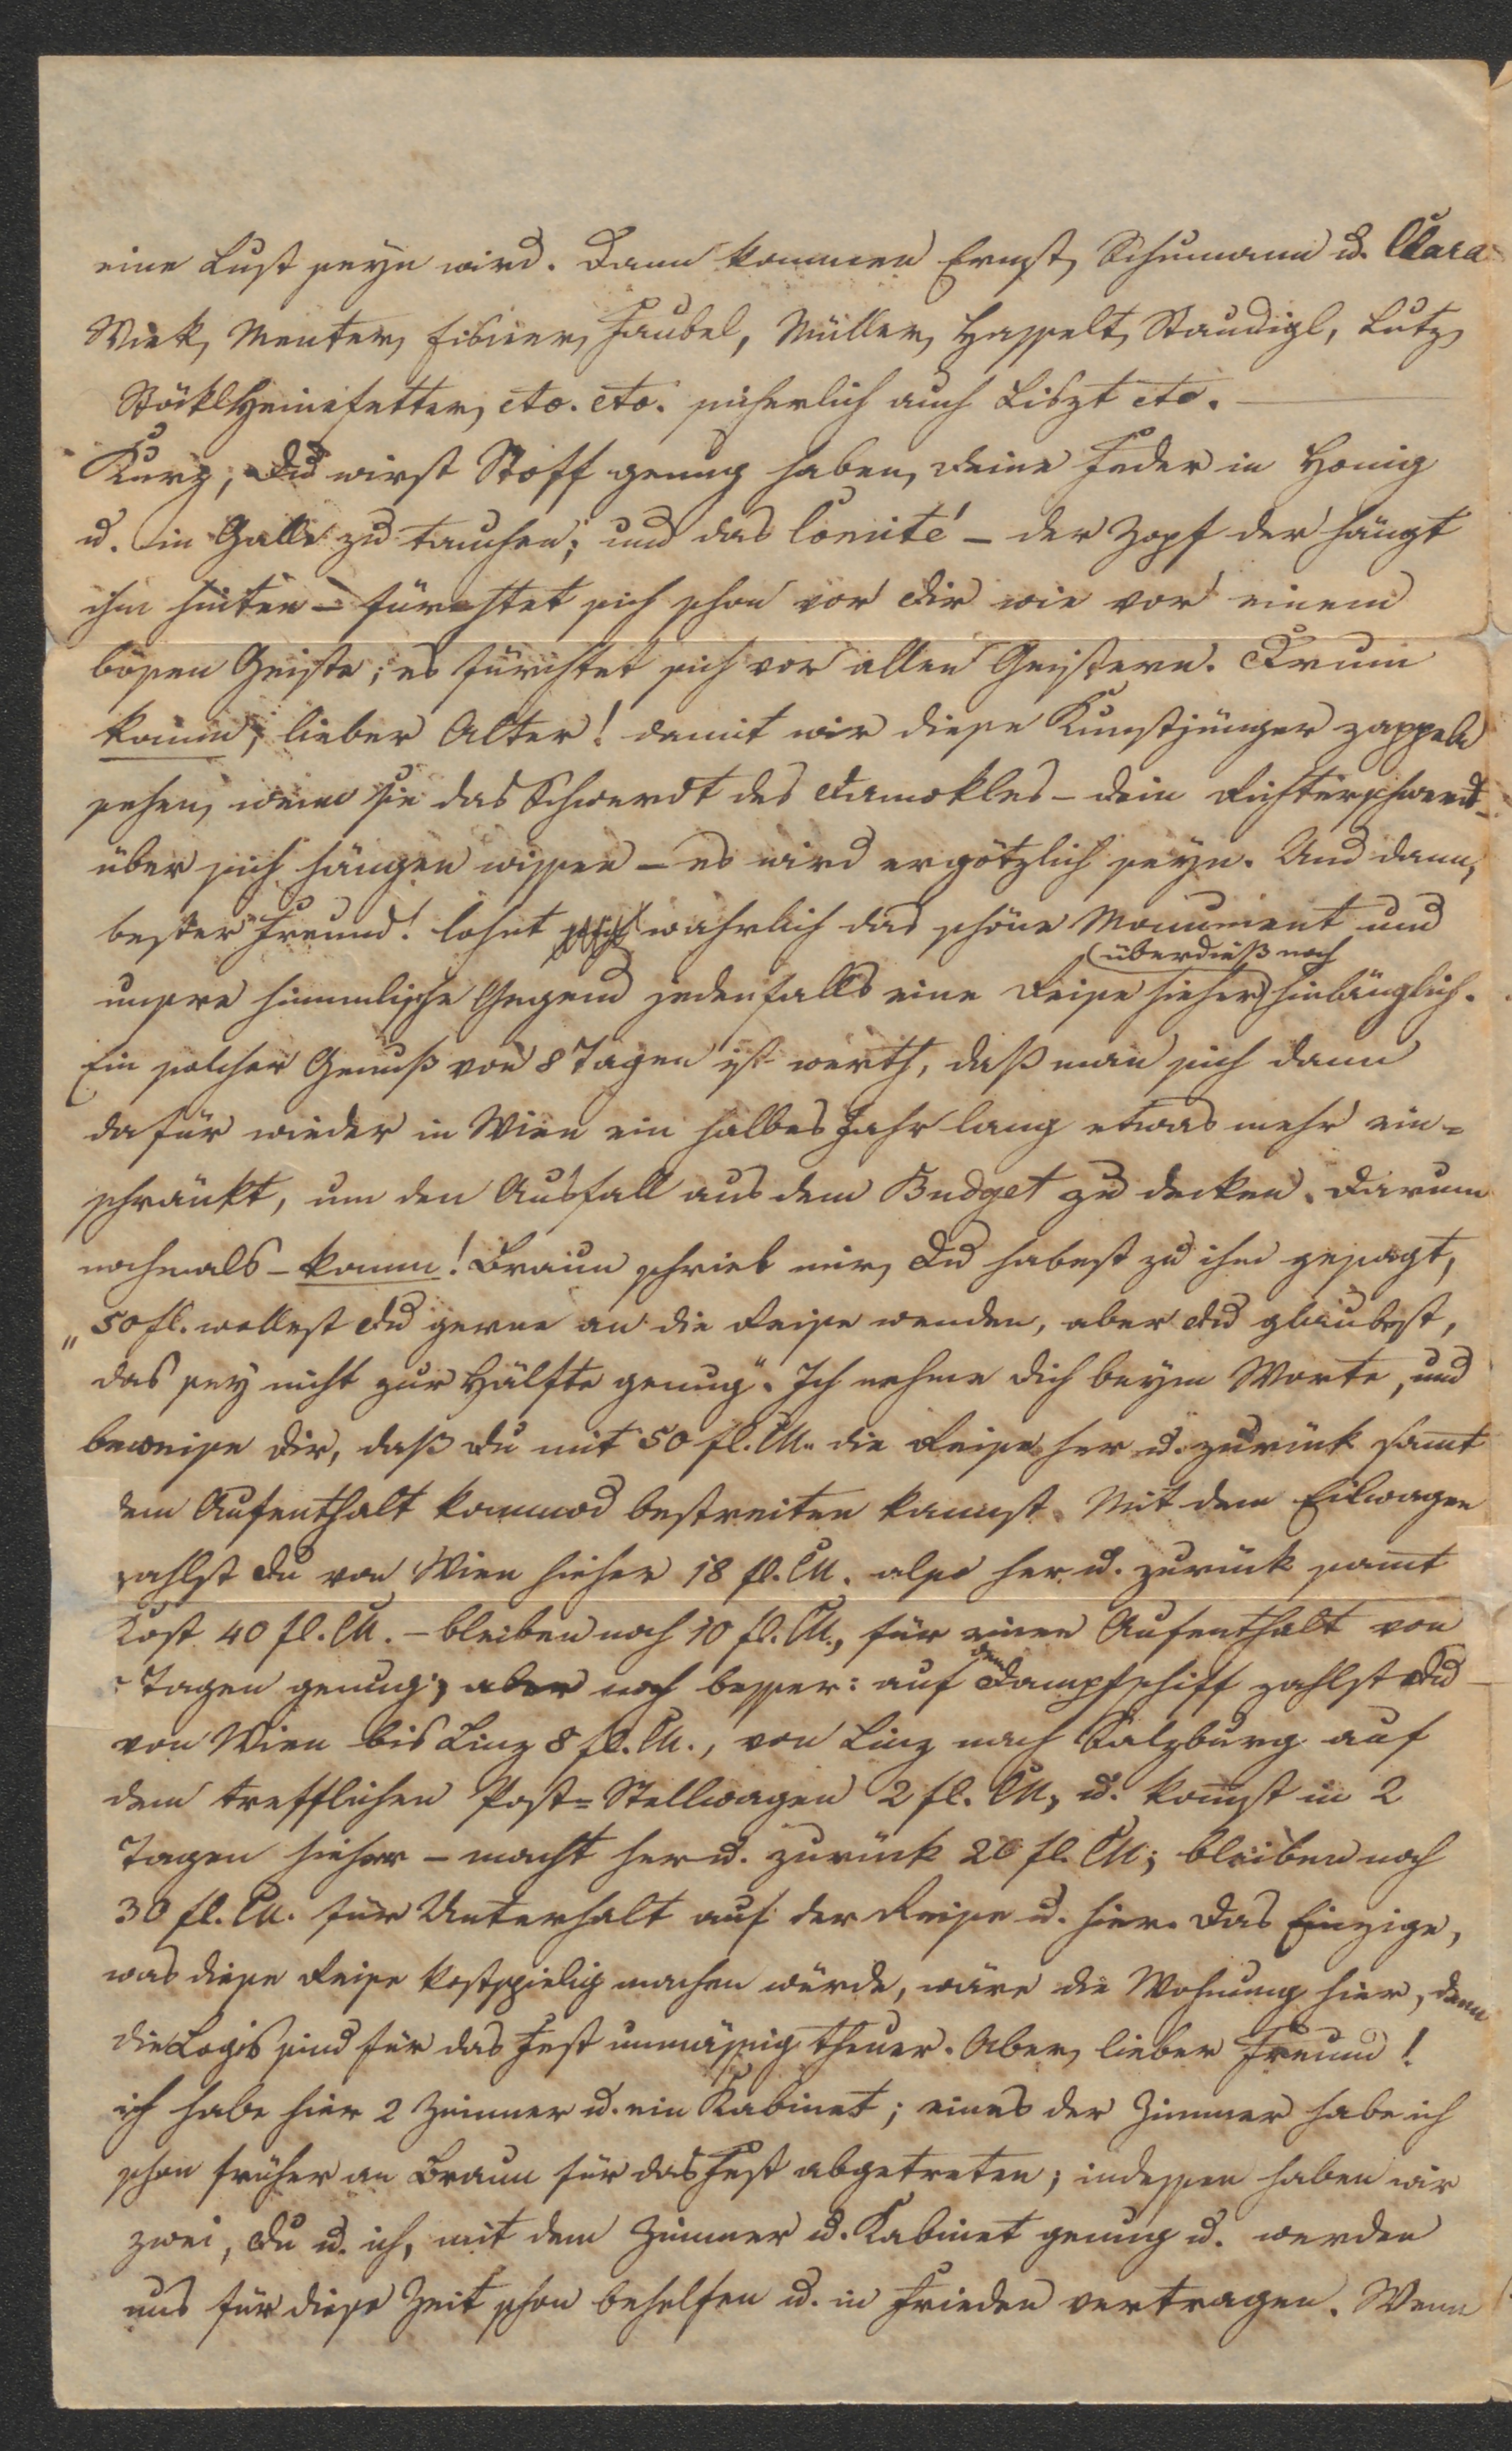 eine Lust seyn wird. Dann kommen Ernst, Schumann u. Clara
Wiek, Menter, Eisner, Faubel, Müller, Hasselt, Staudigl, Lutz,
Stöckl Heinefetter, etc. etc. sicherlich auch Liszt etc. —
Kurz, Du wirst Stoff genug haben, deine Feder in Honig
u. in Galle zu tauchen; und das Comité – der Zopf der hängt
ihm hinten – fürchtet sich schon vor Dir wie vor einem
bösen Geiste; es fürchtet sich vor allen Geistern. Drum
komm, lieber Alter! damit wir diese Kunstjünger zappeln
sehen, wenn sie das Schwerdt des Damokles – dein Richterschwerdt –
über sich hängen wissen – es wird ergötzlich seyn. Und dann,
bester Freund! lohnt wahrlich das schöne Monument und
unsere himmlische Gegend jedenfalls eine Reise hieher überdieß noch hinlänglich.
Ein solcher Genuß von 8 Tagen ist werth, daß man sich dann
dafür wieder in Wien ein halbes Jahr lang etwas mehr ein=
schränkt, um den Ausfall aus dem Budget zu decken. Darum
nochmals – komm! Braun schrieb mir, Du habest zu ihm gesagt,
„50 fl. wollest Du gerne an die Reise wenden, aber Du glaubest,
das sey nicht zur Hälfte genug". Ich nehme Dich beym Worte, und
beweise Dir, daß Du mit 50 fl. CM. die Reise her u. zurück samt
dem Aufenthalt kommod bestreiten kannst. Mit dem Eilwagen
zahlst Du von Wien hieher 18 fl. CM. also her u. zurück samt
Kost 40 fl. CM. – bleiben noch 10 fl. CM., für einen Aufenthalt von
Tagen genug; aber noch besser: auf dem Dampfschiff zahlst Du
von Wien bis Linz 8 fl. CM., von Linz nach Salzburg auf
dem trefflichen Post=Stellwagen 2 fl. CM, u. kommst in 2
Tagen hieher – macht her u. zurück 20 fl. CM; bleiben noch
30 fl. CM. für Unterhalt auf der Reise u. hier. Das Einzige,
was diese Reise kostspielig machen würde, wäre die Wohnung hier, denn
die Logis sind für das Fest unmässig theuer. Aber, lieber Freund!
ich habe hier 2 Zimmer u. ein Kabinet; eines der Zimmer habe ich
schon früher an Braun für das Fest abgetreten; indessen haben wir
zwei, Du u. ich, mit dem Zimmer u. Kabinet genug u. werden
uns für diese Zeit schon behelfen u. in Frieden vertragen. Wenn